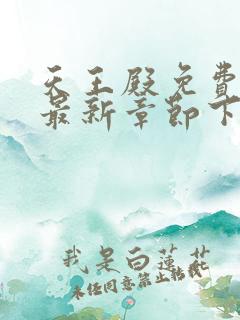 天王殿免费
最新章节下
我是白莲花
未经同意禁止转载